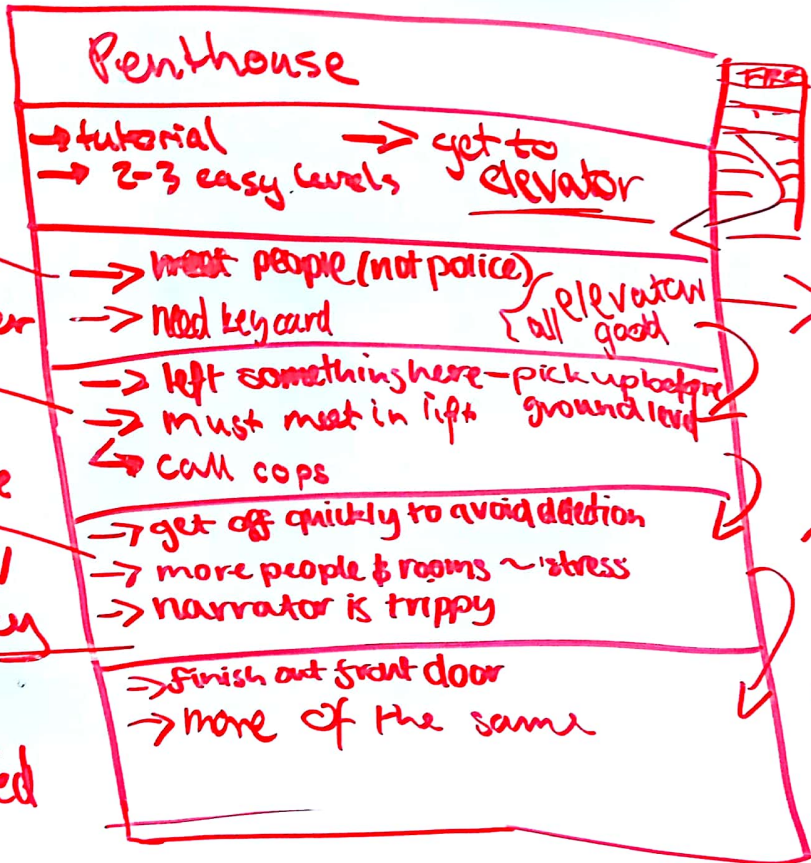 Penthouse
FIRE
→ tutorial → get to
→ 2-3 easy levels elevator
→ meet people (not police)
→ need key card { all elevator good
→ left something here - pick up before
→ must meet in lift ground level
↳ call cops
→ get off quickly to avoid detection
→ more people & rooms ~ stress
→ narrator is trippy
→ finish out front door
→ more of the same
ed